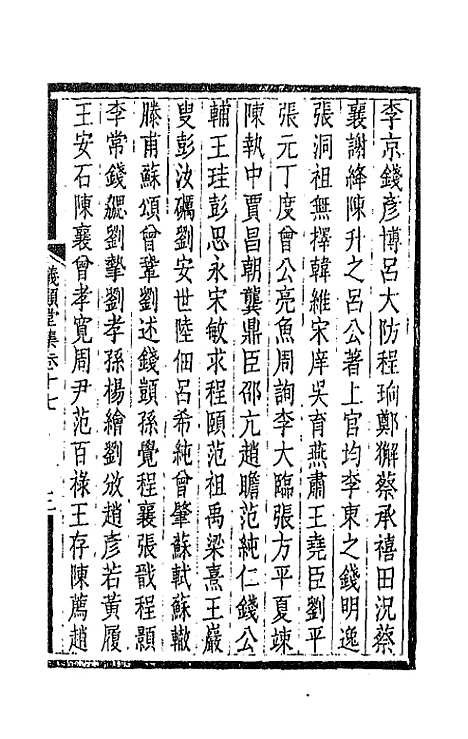 李京錢彥博呂大防程珦鄭獬蔡承禧田況蔡
襄謝絳陳升之呂公著上官均李東之錢明逸
張洞祖無擇韓維宋庠吳育燕肅王堯臣劉平
張元丁度曾公亮魚周詢李大臨張方平夏竦
陳執中賈昌朝龔鼎臣邵亢趙瞻范純仁錢公
輔王珪彭思永宋敏求程頤范祖禹梁燾王巖
叟彭汝礪劉安世陸佃呂希純曾肇蘇軾蘇轍
滕甫蘇頌曾鞏劉述錢顗孫覺程襄張戩程顥
李常錢勰劉摯劉孝孫楊繪劉攽趙彥若黃履
王安石陳襄曾孝寬周尹范百祿王存陳薦趙
儀顧堂集卷十七